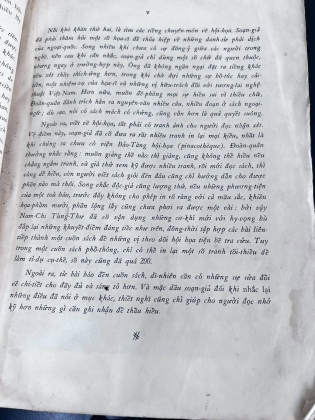 v
Nỗi khó khăn thứ hai, là tìm các tiếng chuyên-môn về hội-họa. Soạn-giả
đã phải thăm hỏi một số họa-sĩ đã chịu hiệu về những danh-từ phải dịch
của ngoại-quốc. Song nhiều khi chưa có sự đồng-ý giữa các người trong
nghề, nên sau khi cân nhắc, soạn-giả chỉ dùng một số chữ đã quen thuộc,
phòng ngay ở trường-hợp này. Ông đã không ngần ngại đặt ra tiếng khác
nếu xét thấy thích-ứng hơn, trong khi chờ đợi những sự bổ-túc hay cải-
tiến, một nhiệm-vụ của họa-sĩ và những vị hữu-trách đối với tương-lai nghệ-
thuật Việt-Nam. Hơn nữa, muốn đề-phòng mọi sự hiểu sai vì thiếu chữ,
Đoàn-quân đành trích hẳn ra nguyên-văn nhiều câu, nhiều đoạn ở sách ngoại-
ngữ; dù sao, nói có sách mách có chứng, cũng vẫn hơn là quả quyết suông.
Ngoài ra, viết về hội-họa, tất phải có tranh ảnh cho người đọc nhận xét.
Về điểm này, soạn-giả đã cố đưa ra rất nhiều tranh in lại mọi kiểu, nhất là
khi chúng ta chưa có viện Bảo-Tàng hội-họa (pinacothèque). Đoàn-quân
thường nhắc rằng: muốn giảng thế nào thì giảng, cũng không thể hiểu nếu
chẳng ngắm tranh, và giả thử xem kỹ được nhiều tranh, rồi mới đọc sách, thì
càng dễ hiểu, còn người viết sách giỏi đến đâu cũng chỉ hướng dẫn cho được
phần nào mà thôi. Song chắc độc-giả cũng lượng thứ, nếu những phương-tiện
của một toà báo, trước đây không cho phép in rõ ràng với cả màu sắc, khiến
họa-phẩm mười, phần lộng lẫy cũng chưa phơi ra được một vài: bởi vậy
Nam-Chi Tùng-Thư đã cố vận dụng những cơ-khí mới với hy-vọng bù
đắp lại những khuyết-điểm đáng tiếc như trên, đồng-thời tập hợp các bài liên-
tiếp thành một cuốn sách để những vị theo dõi hội-họa tiện bề tra cứu. Tuy
trong một cuốn sách phổ-thông, chỉ có thể in lại một số tranh tối-thiểu để
làm tỉ-dụ cụ-thể, số này cũng đã quá 200.
Ngoài ra, từ bài báo đến cuốn sách, dĩ-nhiên cần có những sự sửa đổi
về chi-tiết cho đầy đủ và sáng tỏ hơn. Và mặc dầu soạn-giả đôi khi nhắc lại
những điều đã nói ở mục khác, thiết nghĩ cũng chỉ giúp cho người đọc nhớ
kỹ hơn những gì cần ghi nhận để thấu hiểu.